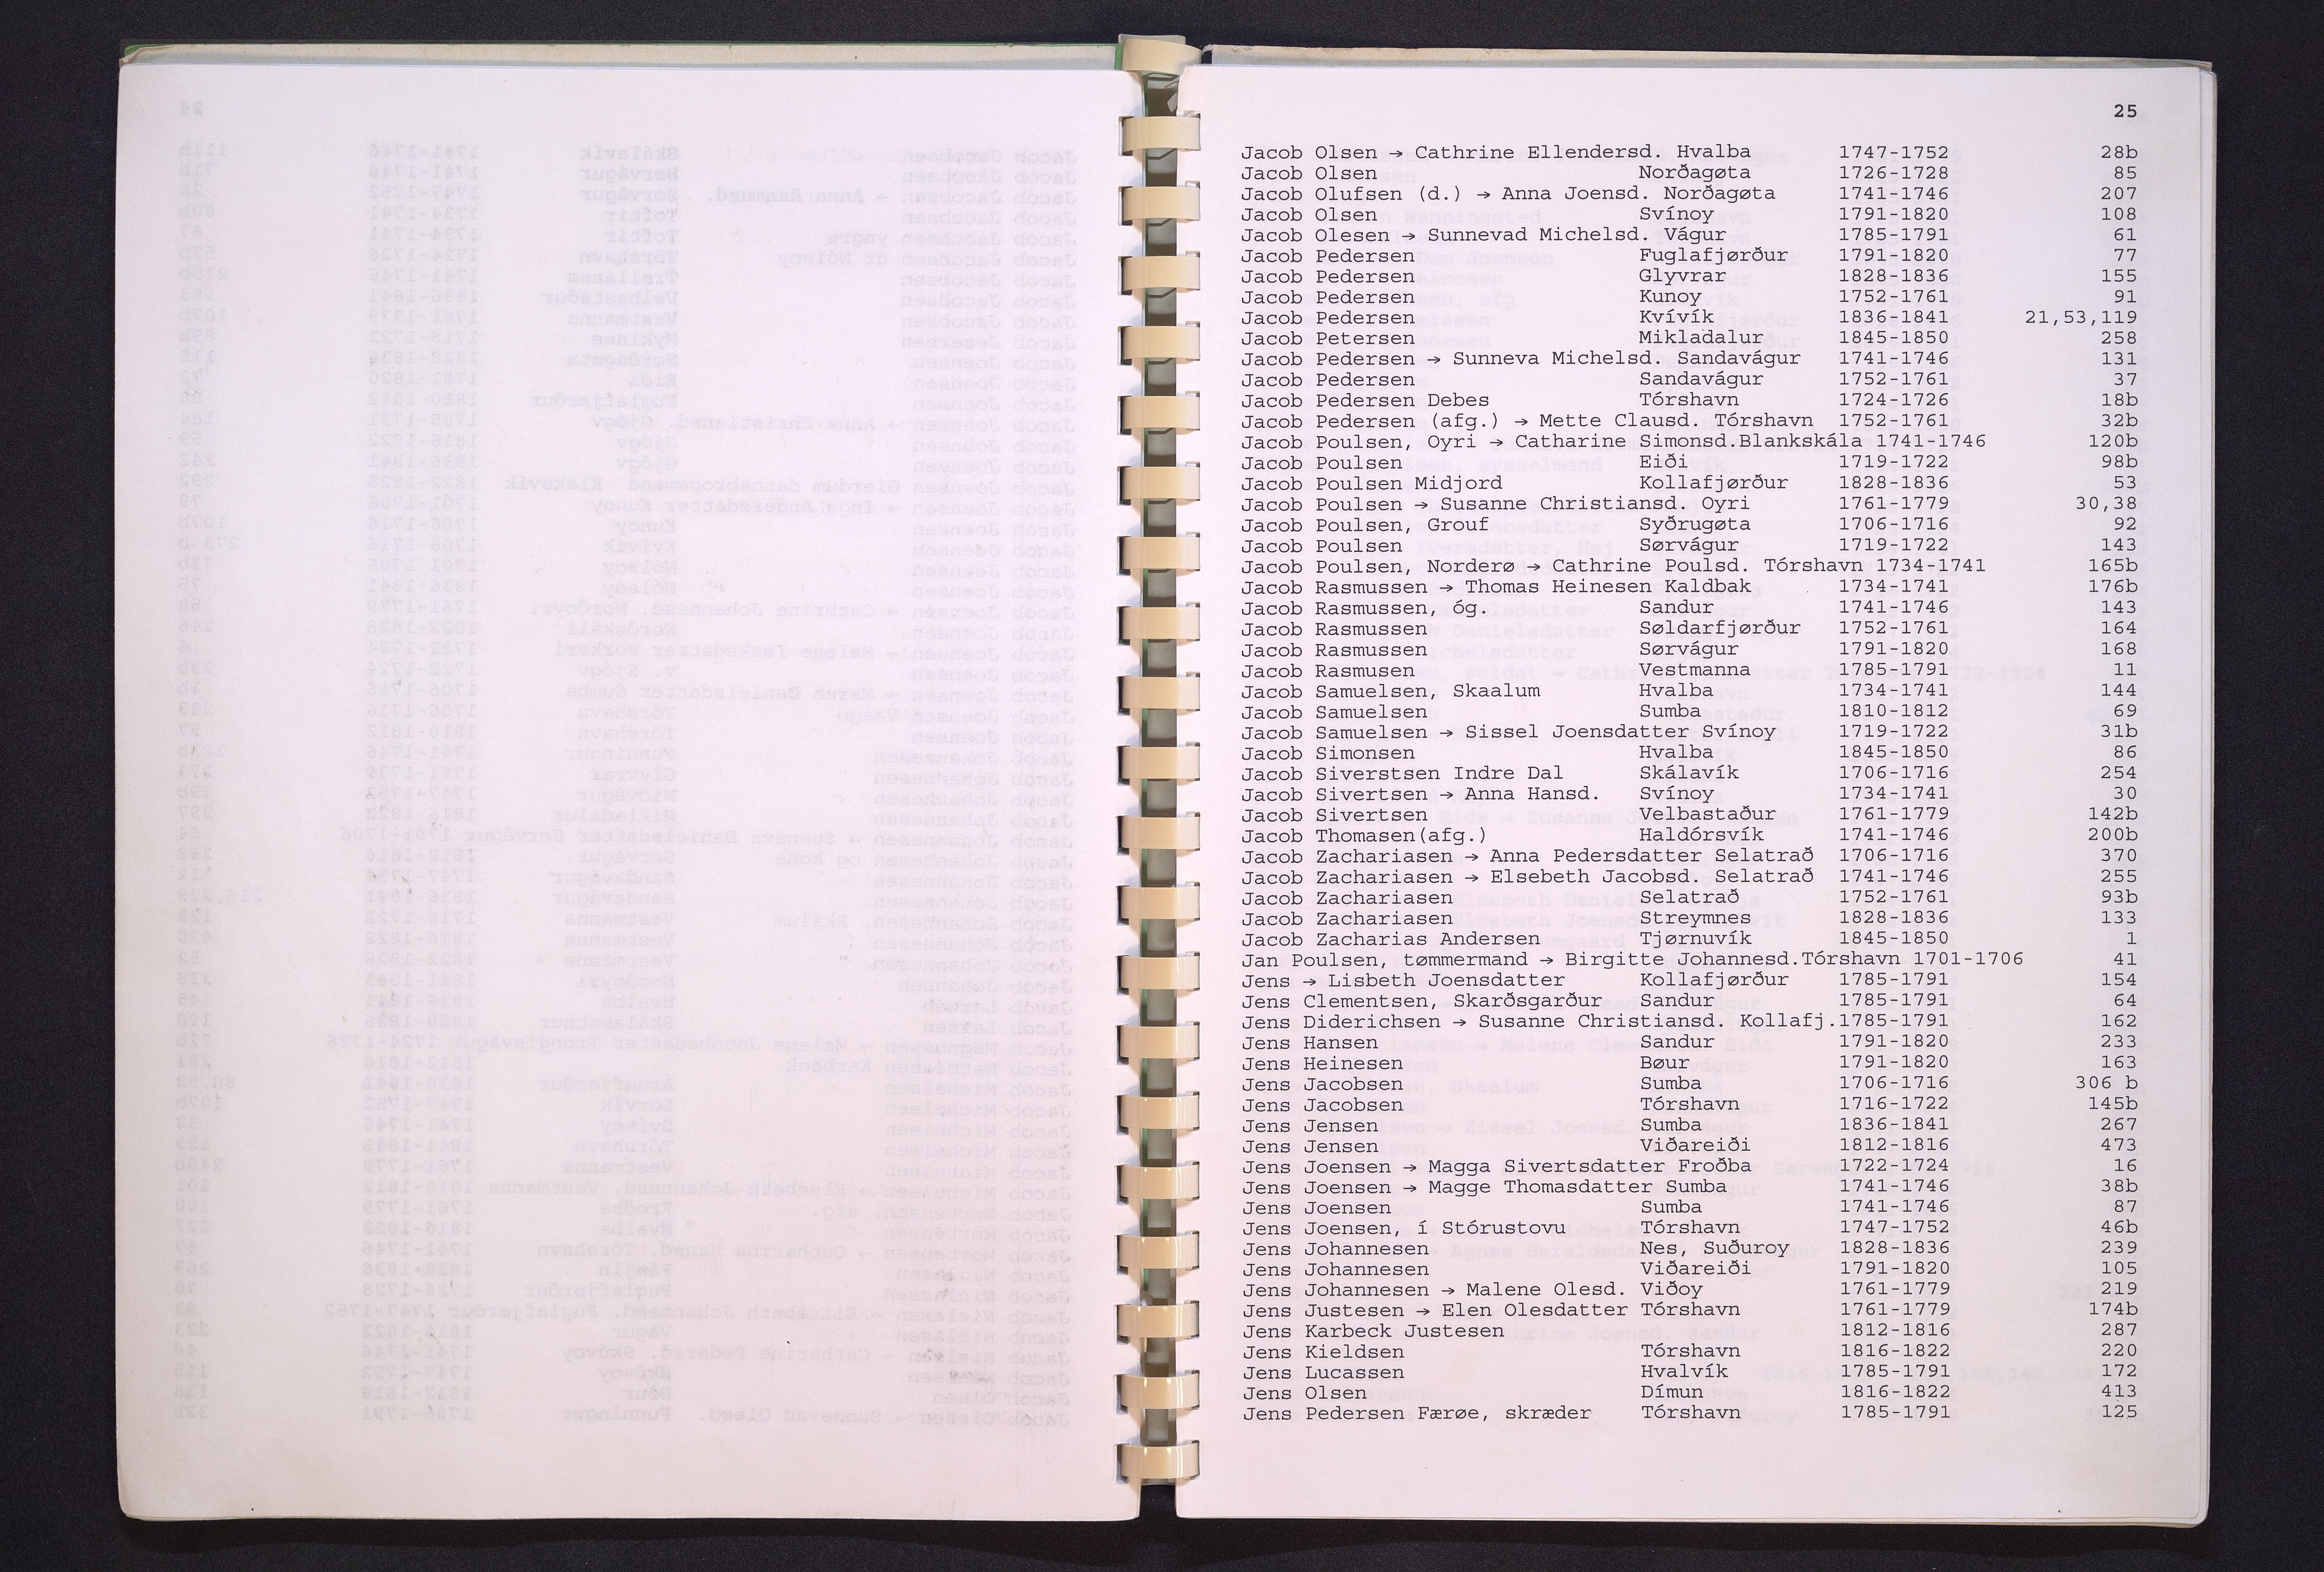 25
Jacob Olsen → Cathrine Ellendersd. Hvalba 1747-1752 28b
Jacob Olsen Norðagøta 1726-1728 85
Jacob Olufsen (d.) → Anna Joensd. Norðagøta 1741-1746 207
Jacob Olsen Svínoy 1791-1820 108
Jacob Olesen → Sunnevad Michelsd. Vágur 1785-1791 61
Jacob Pedersen Fuglafjørður 1791-1820 77
Jacob Pedersen Glyvrar 1828-1836 155
Jacob Pedersen Kunoy 1752-1761 91
Jacob Pedersen Kvívík 1836-1841 21,53,119
Jacob Petersen Mikladalur 1845-1850 258
Jacob Pedersen → Sunneva Michelsd. Sandavágur 1741-1746 131
Jacob Pedersen Sandavágur 1752-1761 37
Jacob Pedersen Debes Tórshavn 1724-1726 18b
Jacob Pedersen (afg.) → Mette Clausd. Tórshavn 1752-1761 32b
Jacob Poulsen, Oyri → Catharine Simonsd.Blankskála 1741-1746 120b
Jacob Poulsen Eiði 1719-1722 98b
Jacob Poulsen Midjord Kollafjørður 1828-1836 53
Jacob Poulsen → Susanne Christiansd. Oyri 1761-1779 30,38
Jacob Poulsen, Grouf Syðrugøta 1706-1716 92
Jacob Poulsen Sørvágur 1719-1722 143
Jacob Poulsen, Norderø → Cathrine Poulsd. Tórshavn 1734-1741 165b
Jacob Rasmussen → Thomas Heinesen Kaldbak 1734-1741 176b
Jacob Rasmussen, óg. Sandur 1741-1746 143
Jacob Rasmussen Søldarfjørður 1752-1761 164
Jacob Rasmussen Sørvágur 1791-1820 168
Jacob Rasmusen Vestmanna 1785-1791 11
Jacob Samuelsen, Skaalum Hvalba 1734-1741 144
Jacob Samuelsen Sumba 1810-1812 69
Jacob Samuelsen → Sissel Joensdatter Svínoy 1719-1722 31b
Jacob Simonsen Hvalba 1845-1850 86
Jacob Siverstsen Indre Dal Skálavík 1706-1716 254
Jacob Sivertsen → Anna Hansd. Svínoy 1734-1741 30
Jacob Sivertsen Velbastaður 1761-1779 142b
Jacob Thomasen(afg.) Haldórsvík 1741-1746 200b
Jacob Zachariasen → Anna Pedersdatter Selatrað 1706-1716 370
Jacob Zachariasen → Elsebeth Jacobsd. Selatrað 1741-1746 255
Jacob Zachariasen Selatrað 1752-1761 93b
Jacob Zachariasen Streymnes 1828-1836 133
Jacob Zacharias Andersen Tjørnuvík 1845-1850 1
Jan Poulsen, tømmermand → Birgitte Johannesd.Tórshavn 1701-1706 41
Jens → Lisbeth Joensdatter Kollafjørður 1785-1791 154
Jens Clementsen, Skarðsgarður Sandur 1785-1791 64
Jens Diderichsen → Susanne Christiansd. Kollafj.1785-1791 162
Jens Hansen Sandur 1791-1820 233
Jens Heinesen Bøur 1791-1820 163
Jens Jacobsen Sumba 1706-1716 306 b
Jens Jacobsen Tórshavn 1716-1722 145b
Jens Jensen Sumba 1836-1841 267
Jens Jensen Viðareiði 1812-1816 473
Jens Joensen → Magga Sivertsdatter Froðba 1722-1724 16
Jens Joensen → Magge Thomasdatter Sumba 1741-1746 38b
Jens Joensen Sumba 1741-1746 87
Jens Joensen, í Stórustovu Tórshavn 1747-1752 46b
Jens Johannesen Nes, Suðuroy 1828-1836 239
Jens Johannesen Viðareiði 1791-1820 105
Jens Johannesen → Malene Olesd. Viðoy 1761-1779 219
Jens Justesen → Elen Olesdatter Tórshavn 1761-1779 174b
Jens Karbeck Justesen 1812-1816 287
Jens Kieldsen Tórshavn 1816-1822 220
Jens Lucassen Hvalvík 1785-1791 172
Jens Olsen Dímun 1816-1822 413
Jens Pedersen Færøe, skræder Tórshavn 1785-1791 125